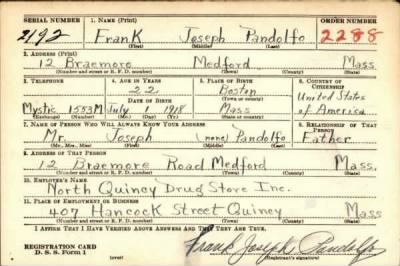 SERIAL NUMBER 1. NAME (Print) ORDER NUMBER
2192 Frank Joseph Pandolfo 2288
(First) (Middle) (Last)
2. ADDRESS (Print)
12 Braemore Medford Mass.
(Number and street or R. F. D. number) (Town) (County) (State)
3. TELEPHONE 4. AGE IN YEARS 5. PLACE OF BIRTH 6. COUNTRY OF CITIZENSHIP
22 Boston
DATE OF BIRTH (Town or county)
Mystic 1553M July 1 1918 Mass United States of America
(Exchange) (Number) (Mo.) (Day) (Yr.) (State or country)
7. NAME OF PERSON WHO WILL ALWAYS KNOW YOUR ADDRESS 8. RELATIONSHIP OF THAT PERSON
Mr. Joseph (none) Pandolfo Father
(Mr., Mrs., Miss) (First) (Middle) (Last)
9. ADDRESS OF THAT PERSON
12 Braemore Road Medford Mass.
(Number and street or R. F. D. number) (Town) (County) (State)
10. EMPLOYER'S NAME
North Quincy Drug Store Inc.
11. PLACE OF EMPLOYMENT OR BUSINESS
407 Hancock Street Quincy Mass
(Number and street or R. F. D. number) (Town) (County) (State)
I AFFIRM THAT I HAVE VERIFIED ABOVE ANSWERS AND THAT THEY ARE TRUE.
REGISTRATION CARD
D. S. S. Form 1 (over) Frank Joseph Pandolfo
(Registrant's signature)